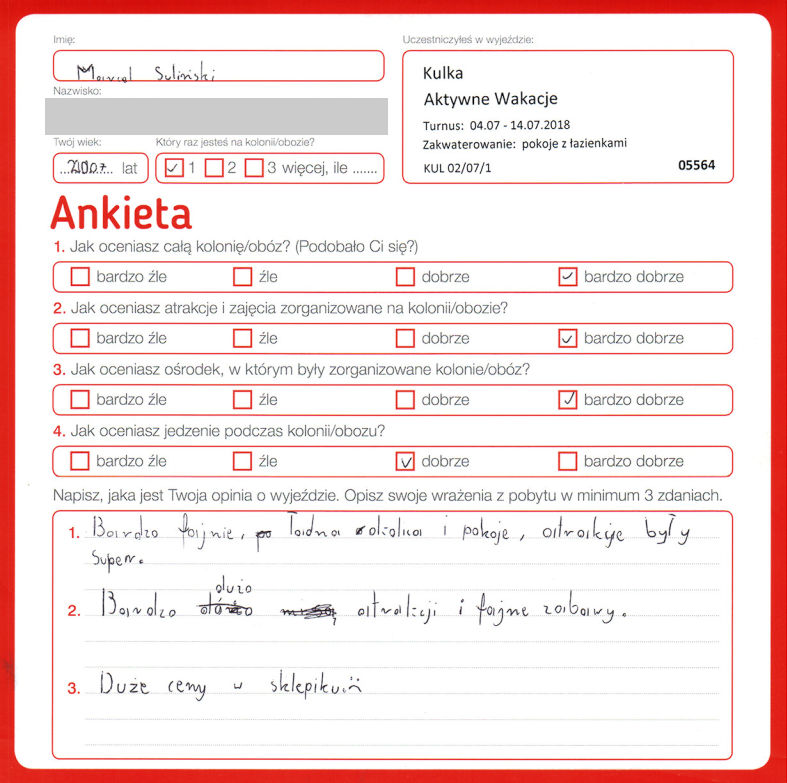 Imię:
Marcel Suliński
Nazwisko:
Twój wiek:
Który raz jesteś na kolonii/obozie?
2007 lat
1 2 3 więcej, ile .......
Uczestniczyłeś w wyjeździe:
Kulka
Aktywne Wakacje
Turnus: 04.07 - 14.07.2018
Zakwaterowanie: pokoje z łazienkami
KUL 02/07/1 05564
Ankieta
1. Jak oceniasz całą kolonię/obóz? (Podobało Ci się?)
bardzo źle źle dobrze bardzo dobrze
2. Jak oceniasz atrakcje i zajęcia zorganizowane na kolonii/obozie?
bardzo źle źle dobrze bardzo dobrze
3. Jak oceniasz ośrodek, w którym były zorganizowane kolonie/obóz?
bardzo źle źle dobrze bardzo dobrze
4. Jak oceniasz jedzenie podczas kolonii/obozu?
bardzo źle źle dobrze bardzo dobrze
Napisz, jaka jest Twoja opinia o wyjeździe. Opisz swoje wrażenia z pobytu w minimum 3 zdaniach.
1. Bardzo fajnie, ładna okolica i pokoje, atrakcje były
super.
2. Bardzo dużo atrakcji i fajne zabawy.
3. Duże ceny w sklepiku